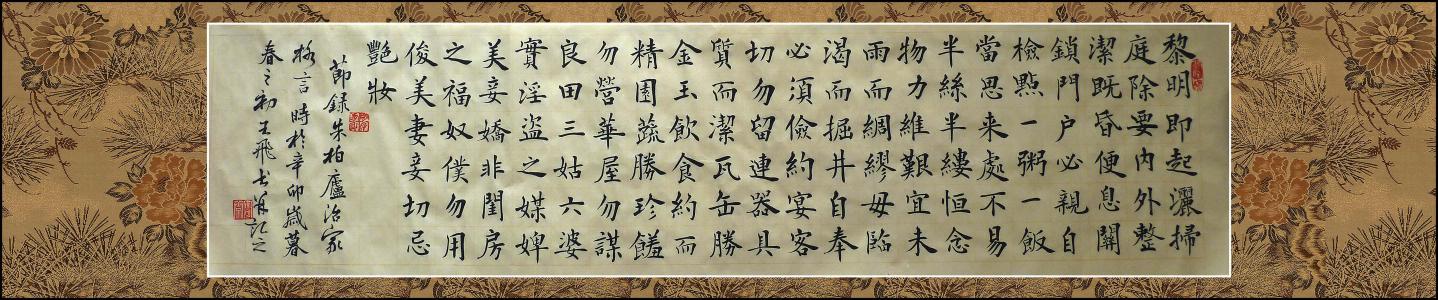 黎明即起灑掃
庭除要内外整
潔既昏便息關
鎖門户必親自
檢點一粥一飯
當思来處不易
半絲半縷恒念
物力維艱宜未
雨而綢繆毋臨
渴而掘井自奉
必須儉約宴客
切勿留連器具
質而潔瓦缶勝
金玉飲食約而
精園蔬勝珍饈
勿營華屋勿謀
良田三姑六婆
實淫盗之媒婢
美妾嬌非閨房
之福奴僕勿用
俊美妻妾切忌
豔妝
節録朱柏廬治家
格言時於辛卯歲暮
春之初王飛书并記之